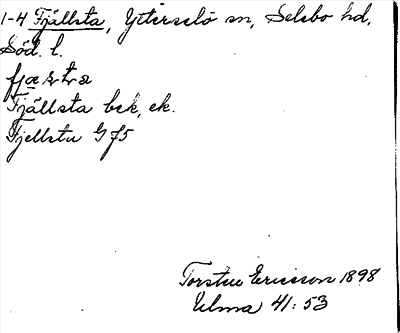 1-4 Fjällsta, Ytterselö sn, Selebo hd,
Söd. l.
Fjällsta bek, ek.
Fjellsta G 75
Torsten Ericsson 1898
Ulma 41:53